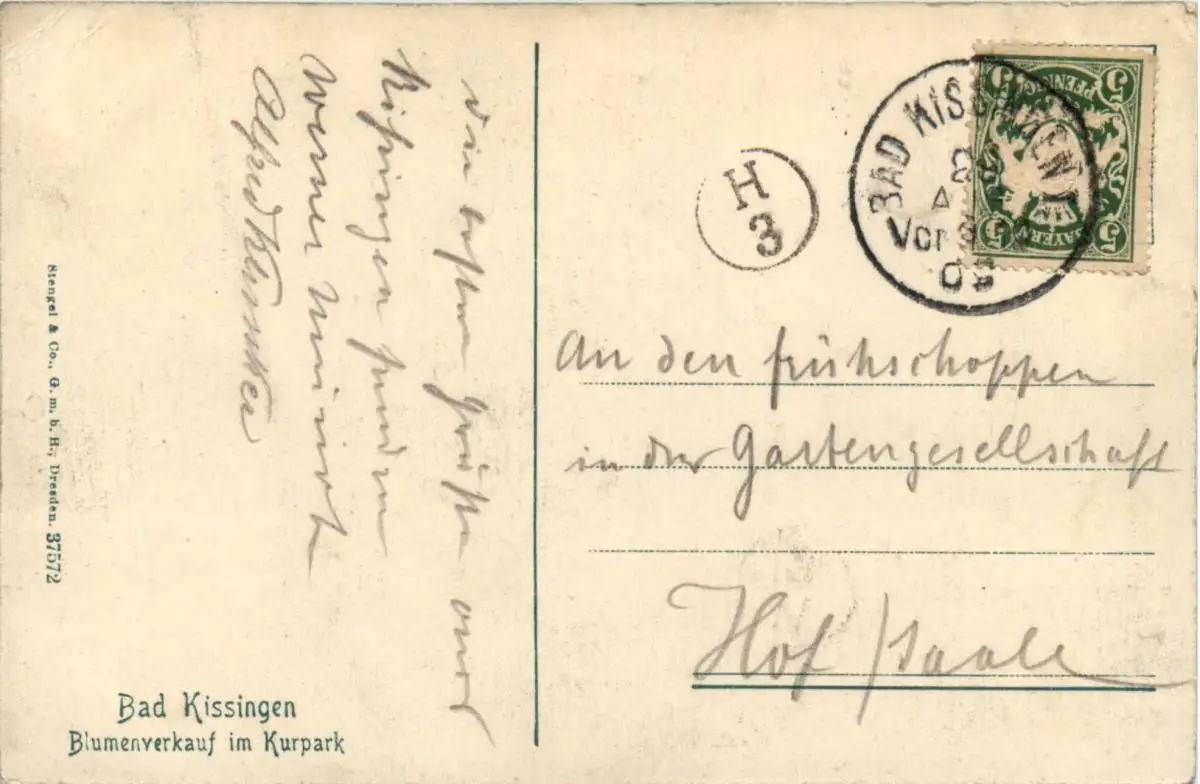 Die besten Grüße aus
Kissingen senden
Werner
Alfred
Stengel & Co., G. m. b. H., Dresden. 37572
Bad Kissingen
Blumenverkauf im Kurpark
H
3
BAD KISSINGEN
Vor
09
5 5
PFENNIG
BAYERN
5 5
An den Frühschoppen
in der Gartengesellschaft
Hof / Saale